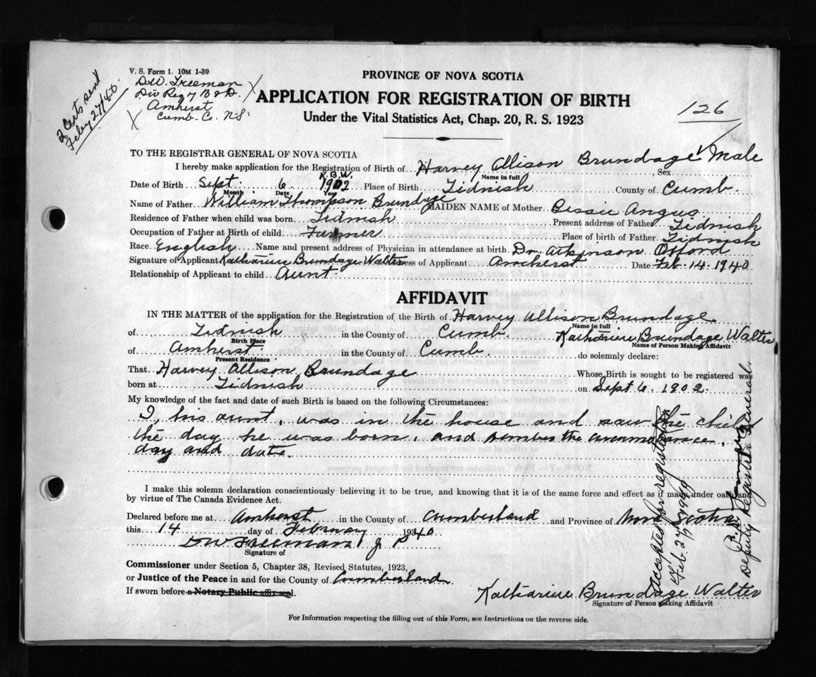 V. S. Form 1. 10M 1-39
D.W. Freeman
Div Reg 7 B & D.
Amherst
Cumb. Co. N.S.
2 Certs. sent
Feby 27/40.
PROVINCE OF NOVA SCOTIA
APPLICATION FOR REGISTRATION OF BIRTH
Under the Vital Statistics Act, Chap. 20, R. S. 1923
126
TO THE REGISTRAR GENERAL OF NOVA SCOTIA
I hereby make application for the Registration of Birth of Harvey Allison Brundage Male
Name in full Sex
K.B.W.
Date of Birth Sept. 6 1902 Place of Birth Tidnish County of Cumb.
Month Date Year
Name of Father William Thompson Brundage MAIDEN NAME of Mother Bessie Angus
Residence of Father when child was born Tidnish Present address of Father Tidnish
Occupation of Father at Birth of child Farmer Place of birth of Father Tidnish
Race English Name and present address of Physician in attendance at birth Dr. Atkinson Oxford
Signature of Applicant Katharine Brundage Walter Address of Applicant Amherst Date Feb. 14. 1940
Relationship of Applicant to child Aunt
AFFIDAVIT
IN THE MATTER of the application for the Registration, of the Birth of Harvey Allison Brundage
Name in full
of Tidnish in the County of Cumb. Katharine Brundage Walter
Birth Place Name of Person Making Affidavit
of Amherst in the County of Cumb. do solemnly declare:
Present Residence
That Harvey Allison Brundage Whose Birth is sought to be registered was
born at Tidnish on Sept 6. 1902.
My knowledge of the fact and date of such Birth is based on the following Circumstances:
I, his aunt, was in the house and saw the child
the day he was born, and remember the
day and date.
I make this solemn declaration conscientiously believing it to be true, and knowing that it is of the same force and effect as if made under oath and
by virtue of The Canada Evidence Act.
Declared before me at Amherst in the County of Cumberland and Province of Nova Scotia
this 14 day of February 1940
D W Freeman J P
Signature of
Commissioner under Section 5, Chapter 38, Revised Statutes, 1923,
or Justice of the Peace in and for the County of Cumberland
If sworn before a Notary Public affix seal.
Katharine Brundage Walter
Signature of Person Making Affidavit
For Information respecting the filling out of this Form, see Instructions on the reverse side.
Accepted for registration
Feb. 27, 1940
Deputy Registrar General.